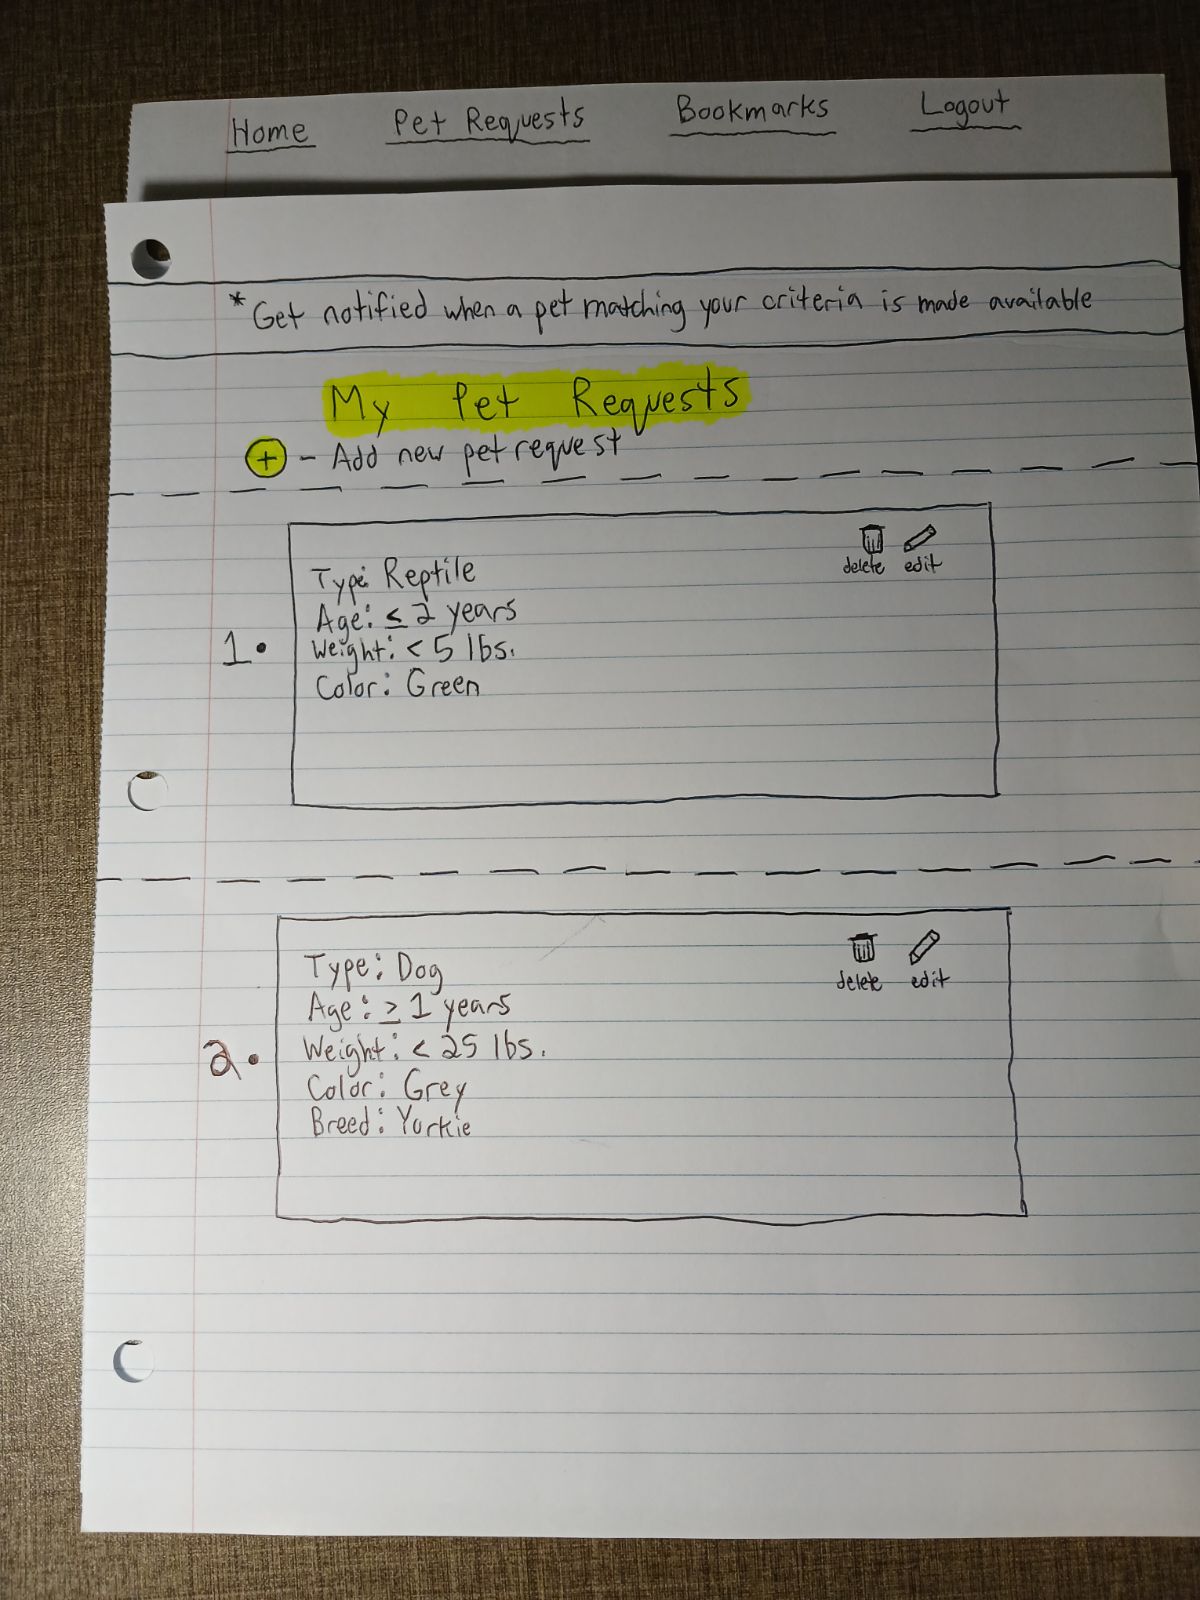 Home Pet Requests Bookmarks Logout
* Get notified when a pet matching your criteria is made available
My Pet Requests
+ - Add new pet request
delete edit
1.
Type: Reptile
Age: ≤ 2 years
Weight: < 5 lbs.
Color: Green
delete edit
2.
Type: Dog
Age: ≥ 1 years
Weight: < 25 lbs.
Color: Grey
Breed: Yorkie